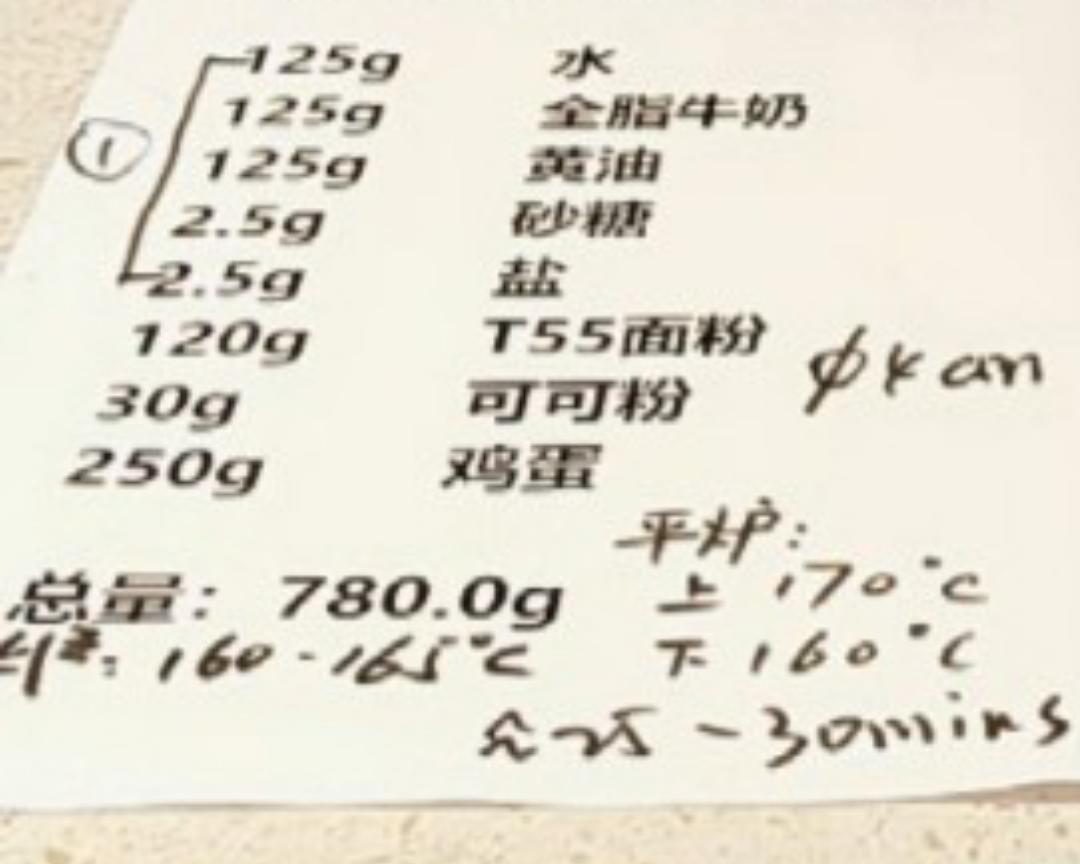 125g 水
125g 全脂牛奶
① 125g 黄油
2.5g 砂糖
2.5g 盐
120g T55面粉
φ4cm
30g 可可粉
250g 鸡蛋
平炉:
总量: 780.0g
上 170°C
: 160-165°C
下 160°C
25-30mins